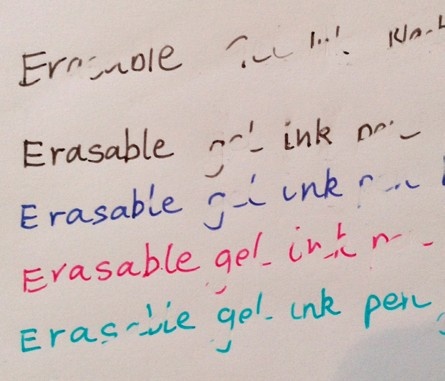 Erasable
Erasable gel ink
Erasable gel ink
Erasable gel ink
Erasable gel ink pen